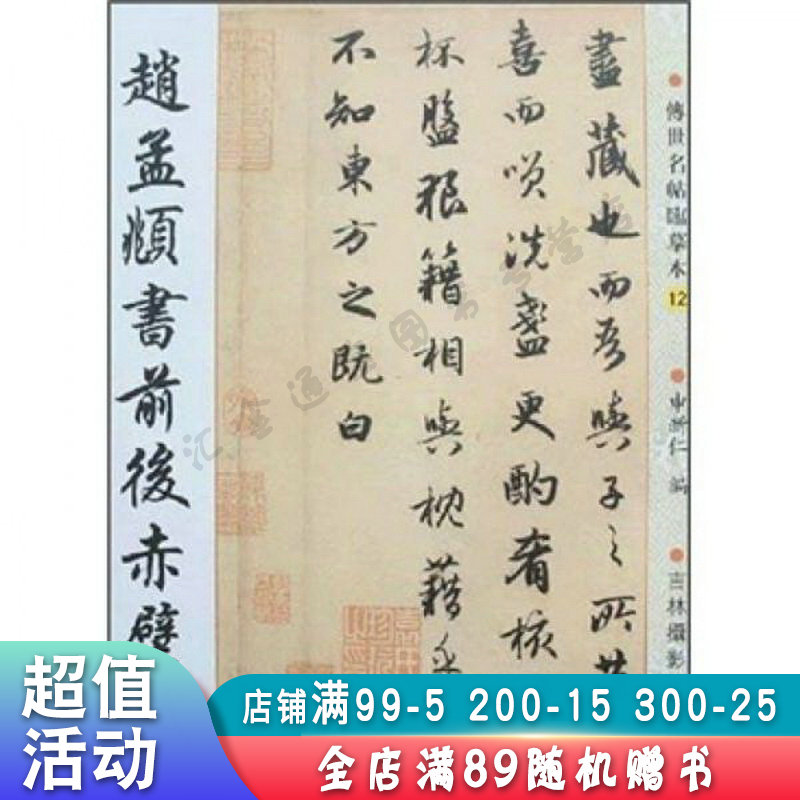 傳世名帖臨摹本 12
編
吉林攝影
盡藏也而吾與子之所共
喜而咲洗盞更酌肴核
杯盤狼籍相與枕藉乎
不知東方之既白
趙孟頫書前後赤壁
超值
活动
店铺满99-5 200-15 300-25
全店满89随机赠书